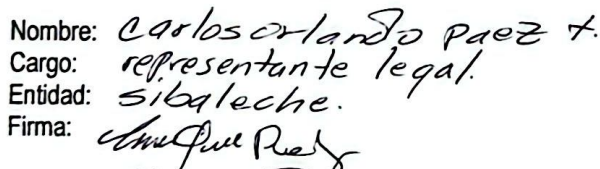 Nombre: Carlos Orlando Paez t.
Cargo: representante legal.
Entidad: sibaleche.
Firma: